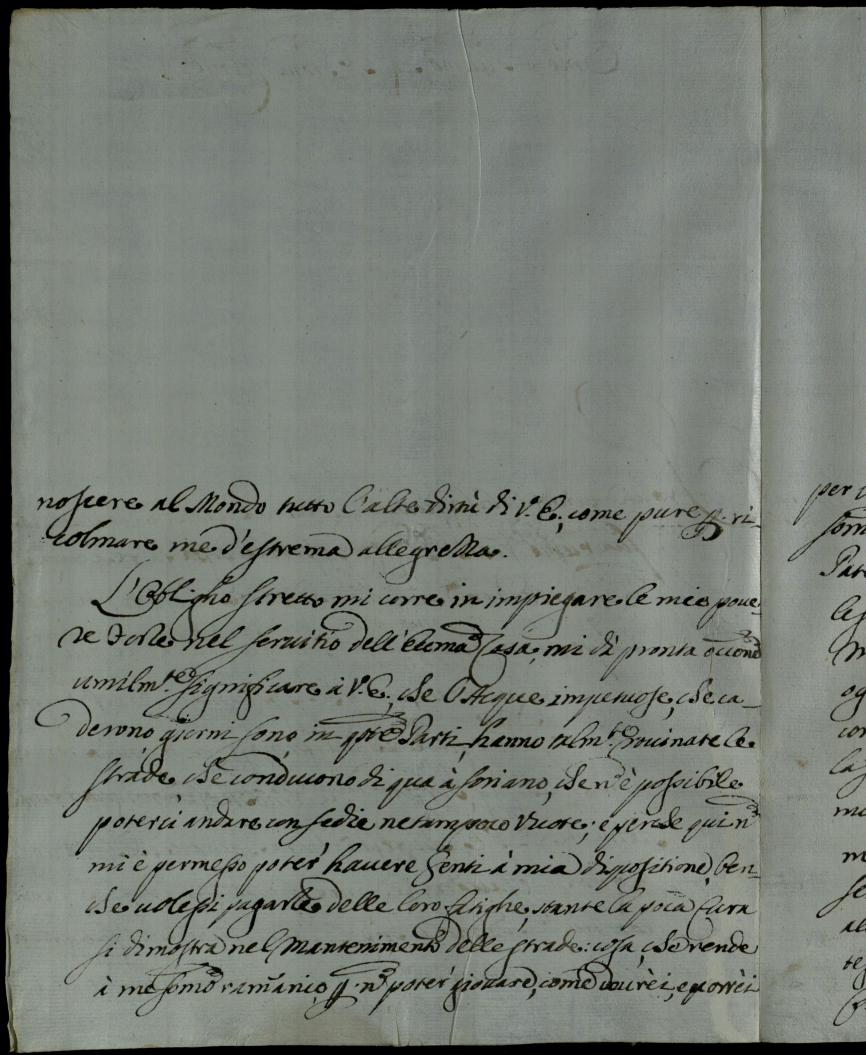 noscere al Mondo tutto l'alte di V. E., come pure p. ri-
colmare me d'estrema allegrezza.
L'Obligho stretto mi corre in impiegare le mie pove-
re forze nel servitio dell'Ecc.ma Casa, mi dà pronta occ.ne
umilm.te significare à V. E., che l'Acque impetuose, che ca-
derono giorni sono in q.te Parti, hanno talm.te rovinate le
strade, che conducono di qua à Soriano, che n. è possibile
poterci andare con sedie ne tampoco Vuote; e perche qui n.
mi è permesso poter havere Genti à mia dispositione, ben-
che volessi pagarle delle loro fatighe, stante la poca cura
si dimostra nel mantenimento delle strade: cosa, che rende
à me som.o ramarico, p. n. poter giovare, come dovrei, e vorrei
per
som
Pat